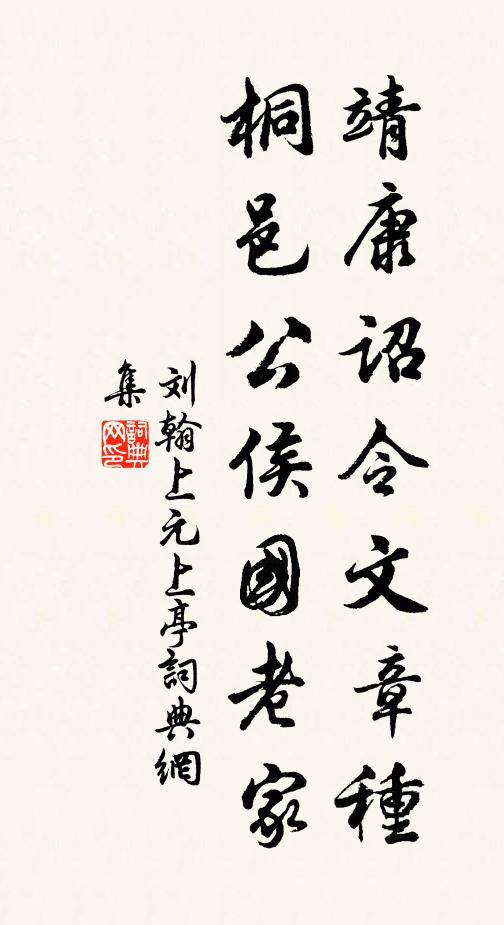 靖康詔令文章種
桐邑公侯國老家
刘翰上元上亭詞典網
集
詞典
网印